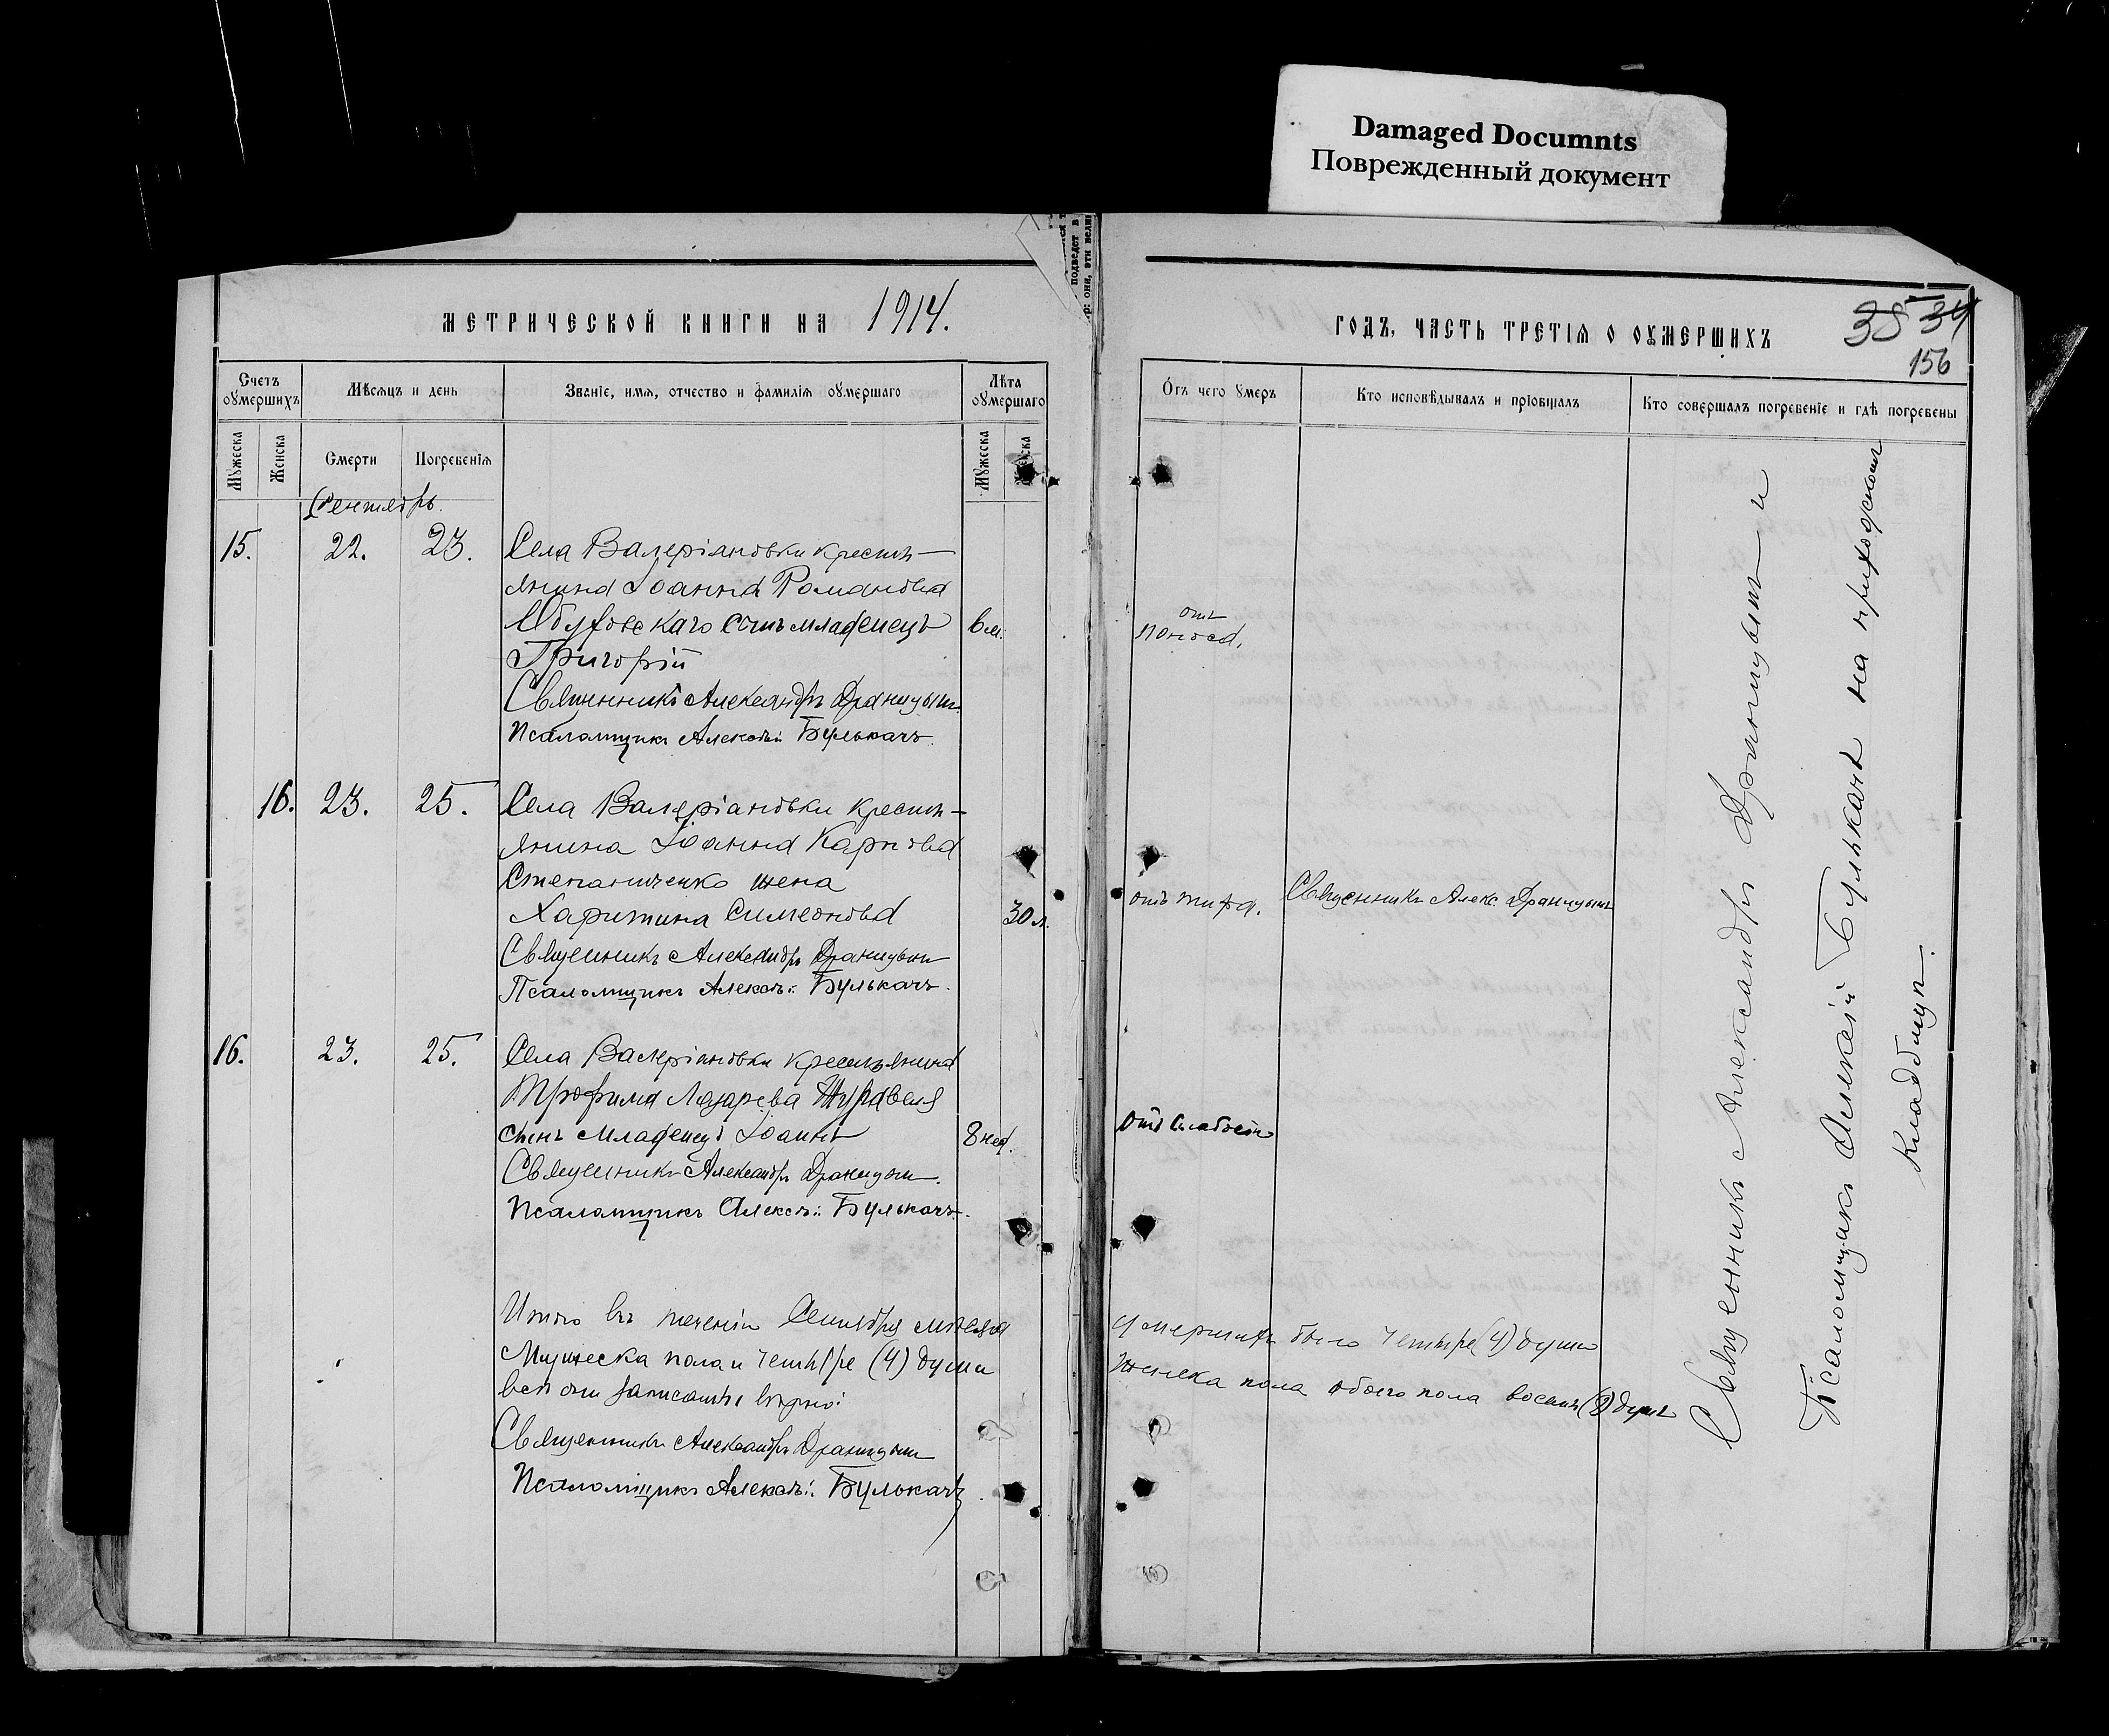 Damaged Documnts
Поврежденный документ
МЕТРИЧЕСКОЙ КНИГИ НА 1914.
Счетъ оумершихъ
Мѣсяцъ и день
Званіе, имя, отчество и фамилія оумершаго
Лѣта оумершаго
Мужеска
Женска
Смерти
Погребенія
Мужеска
Женска
Сентябрь.
15. 22. 23. Села Валеріановки крестья-
янина Іоанна Романова
Обуховскаго сынъ младенецъ 6 м.
Григорій
Священникъ Александръ Драницынъ.
Псаломщикъ Алексѣй Булькачъ.
16. 23. 25. Села Валеріановки кресть-
янина Іоанна Карпова
Степаниченко жена
Харитина Симеонова 30 л.
Священникъ Александръ Драницынъ
Псаломщикъ Алексѣй Булькачъ.
16. 23. 25. Села Валеріановки крестьянина
Трофима Лазарева Журавеля
сынъ младенецъ Іоаннъ 8 нед.
Священникъ Александръ Драницынъ.
Псаломщикъ Алексѣй Булькачъ.
Итого въ теченіи Сентября мѣсяца
Мужеска пола и четыре (4) души
всѣ они записаны вѣрно:
Священникъ Александръ Драницынъ
Псаломщикъ Алексѣй Булькачъ
ГОДЪ, ЧАСТЬ ТРЕТІЯ О ОУМЕРШИХЪ
38 34
156
Отъ чего умеръ
Кто исповѣдывалъ и пріобщалъ
Кто совершалъ погребеніе и гдѣ погребены
отъ
поноса.
отъ тифа. Священникъ Алекс. Драницынъ
отъ слабости
умершихъ было четыре (4) души
женска пола обоего пола восемь (8) душъ
Священникъ Александръ Драницынъ и
Псаломщикъ Алексѣй Булькачъ на приходскомъ
кладбищѣ.